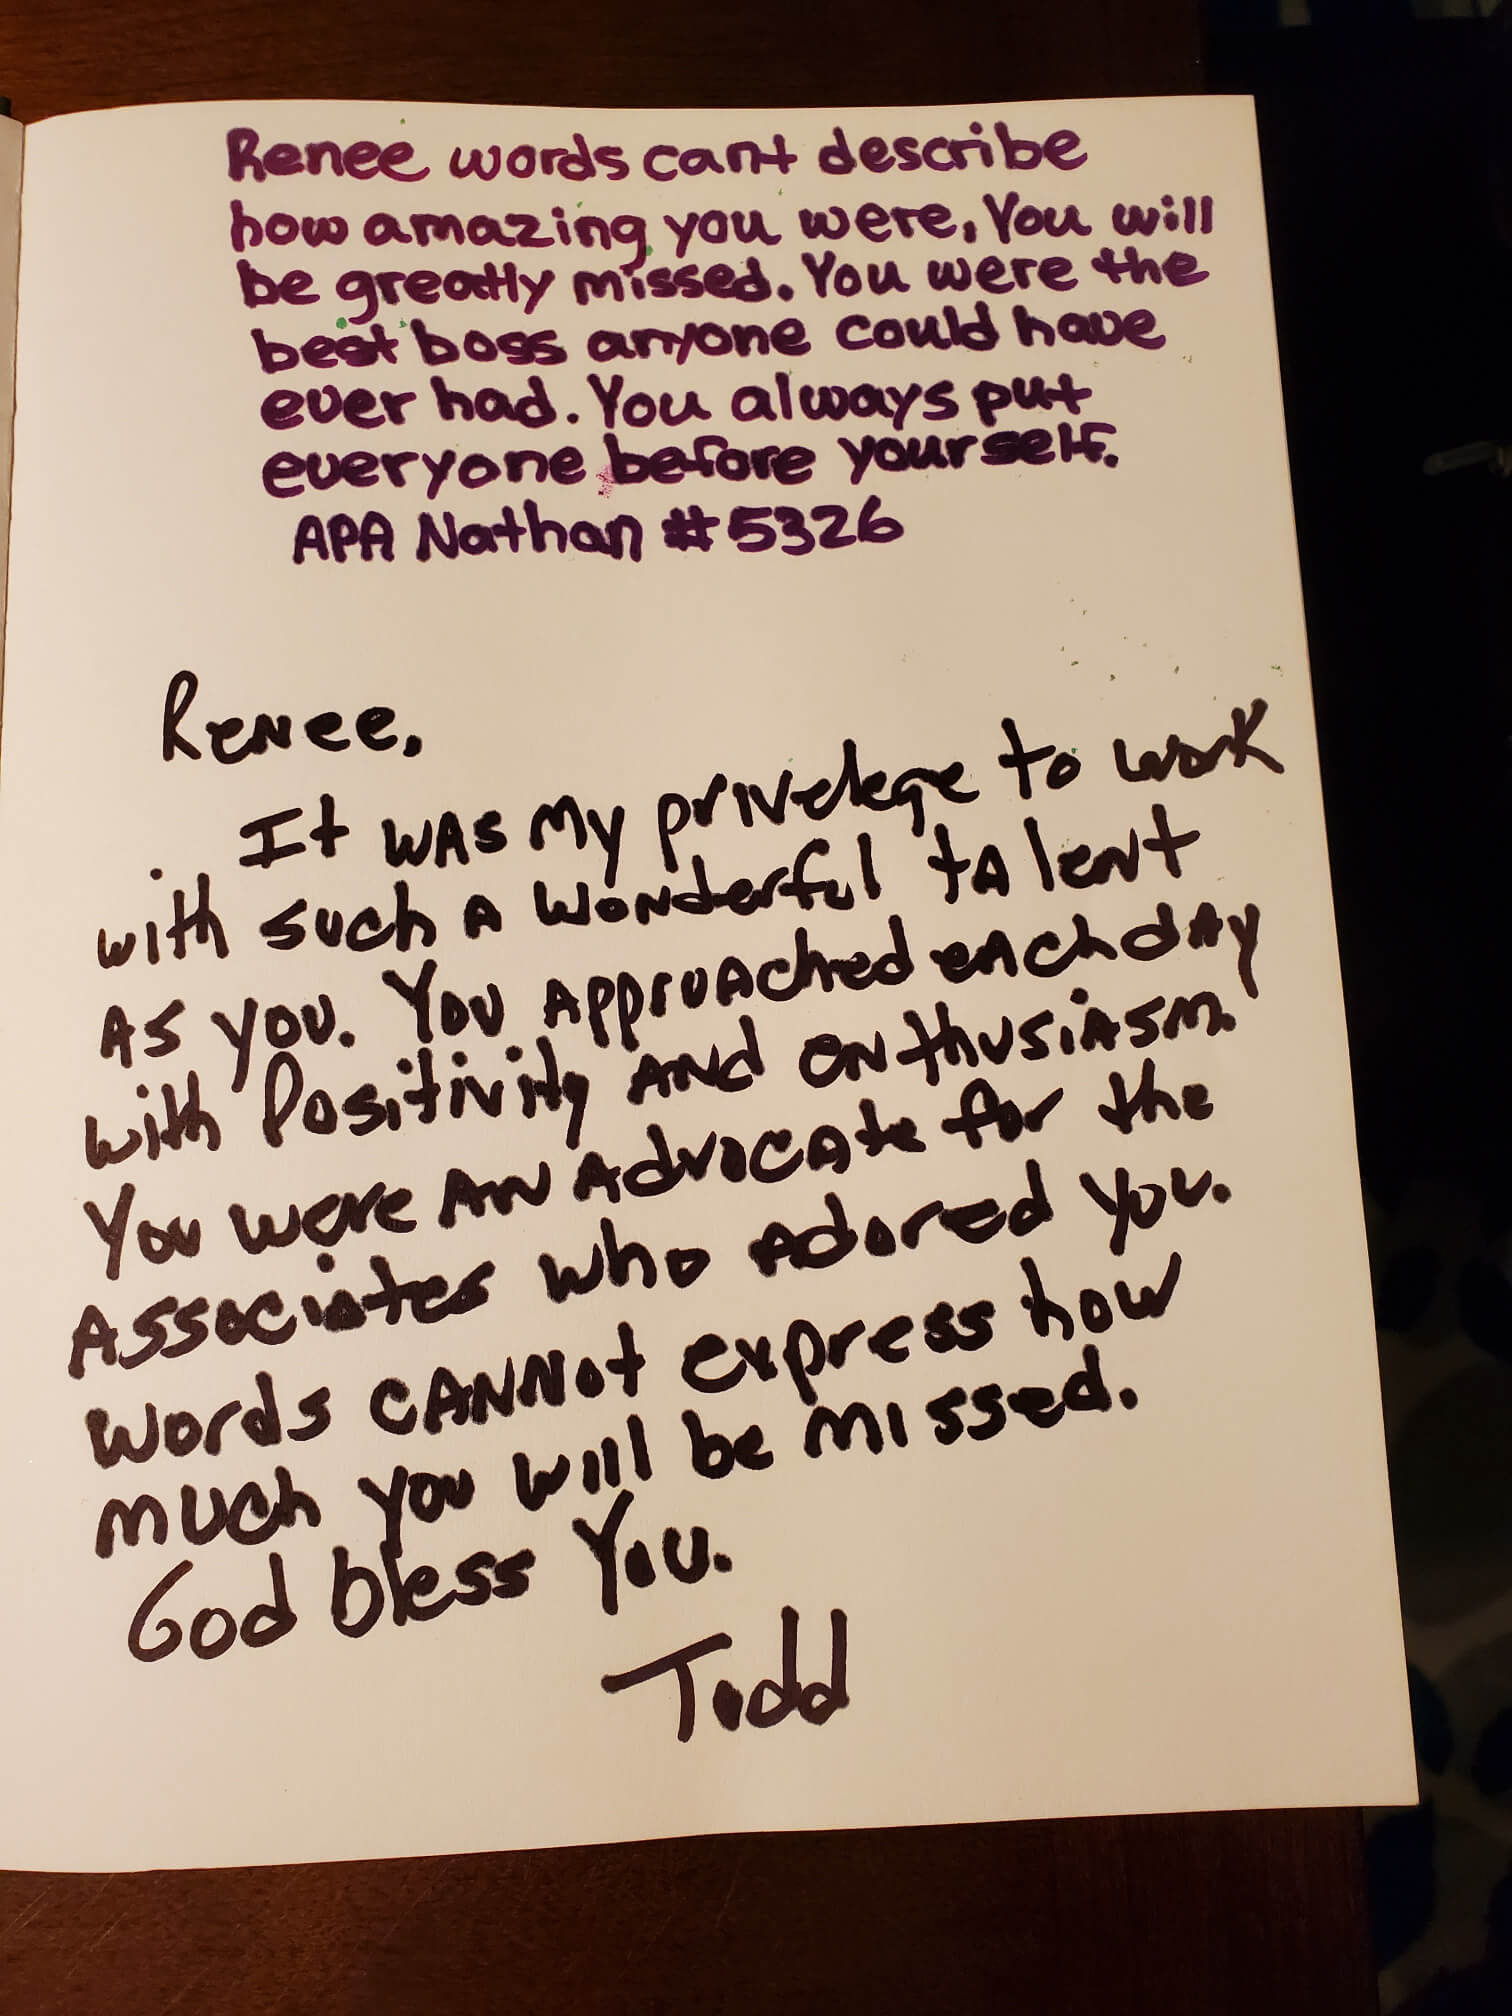 Renee words cant describe
how amazing you were. You will
be greatly missed. You were the
best boss anyone could have
ever had. You always put
everyone before yourself.
APA Nathan #5326
Renee,
It was my privelege to work
with such a wonderful talent
as you. You approached each day
with Positivity and enthusiasm.
You were an advocate for the
Associates who adored you.
Words cannot express how
much you will be missed.
God bless You.
Todd